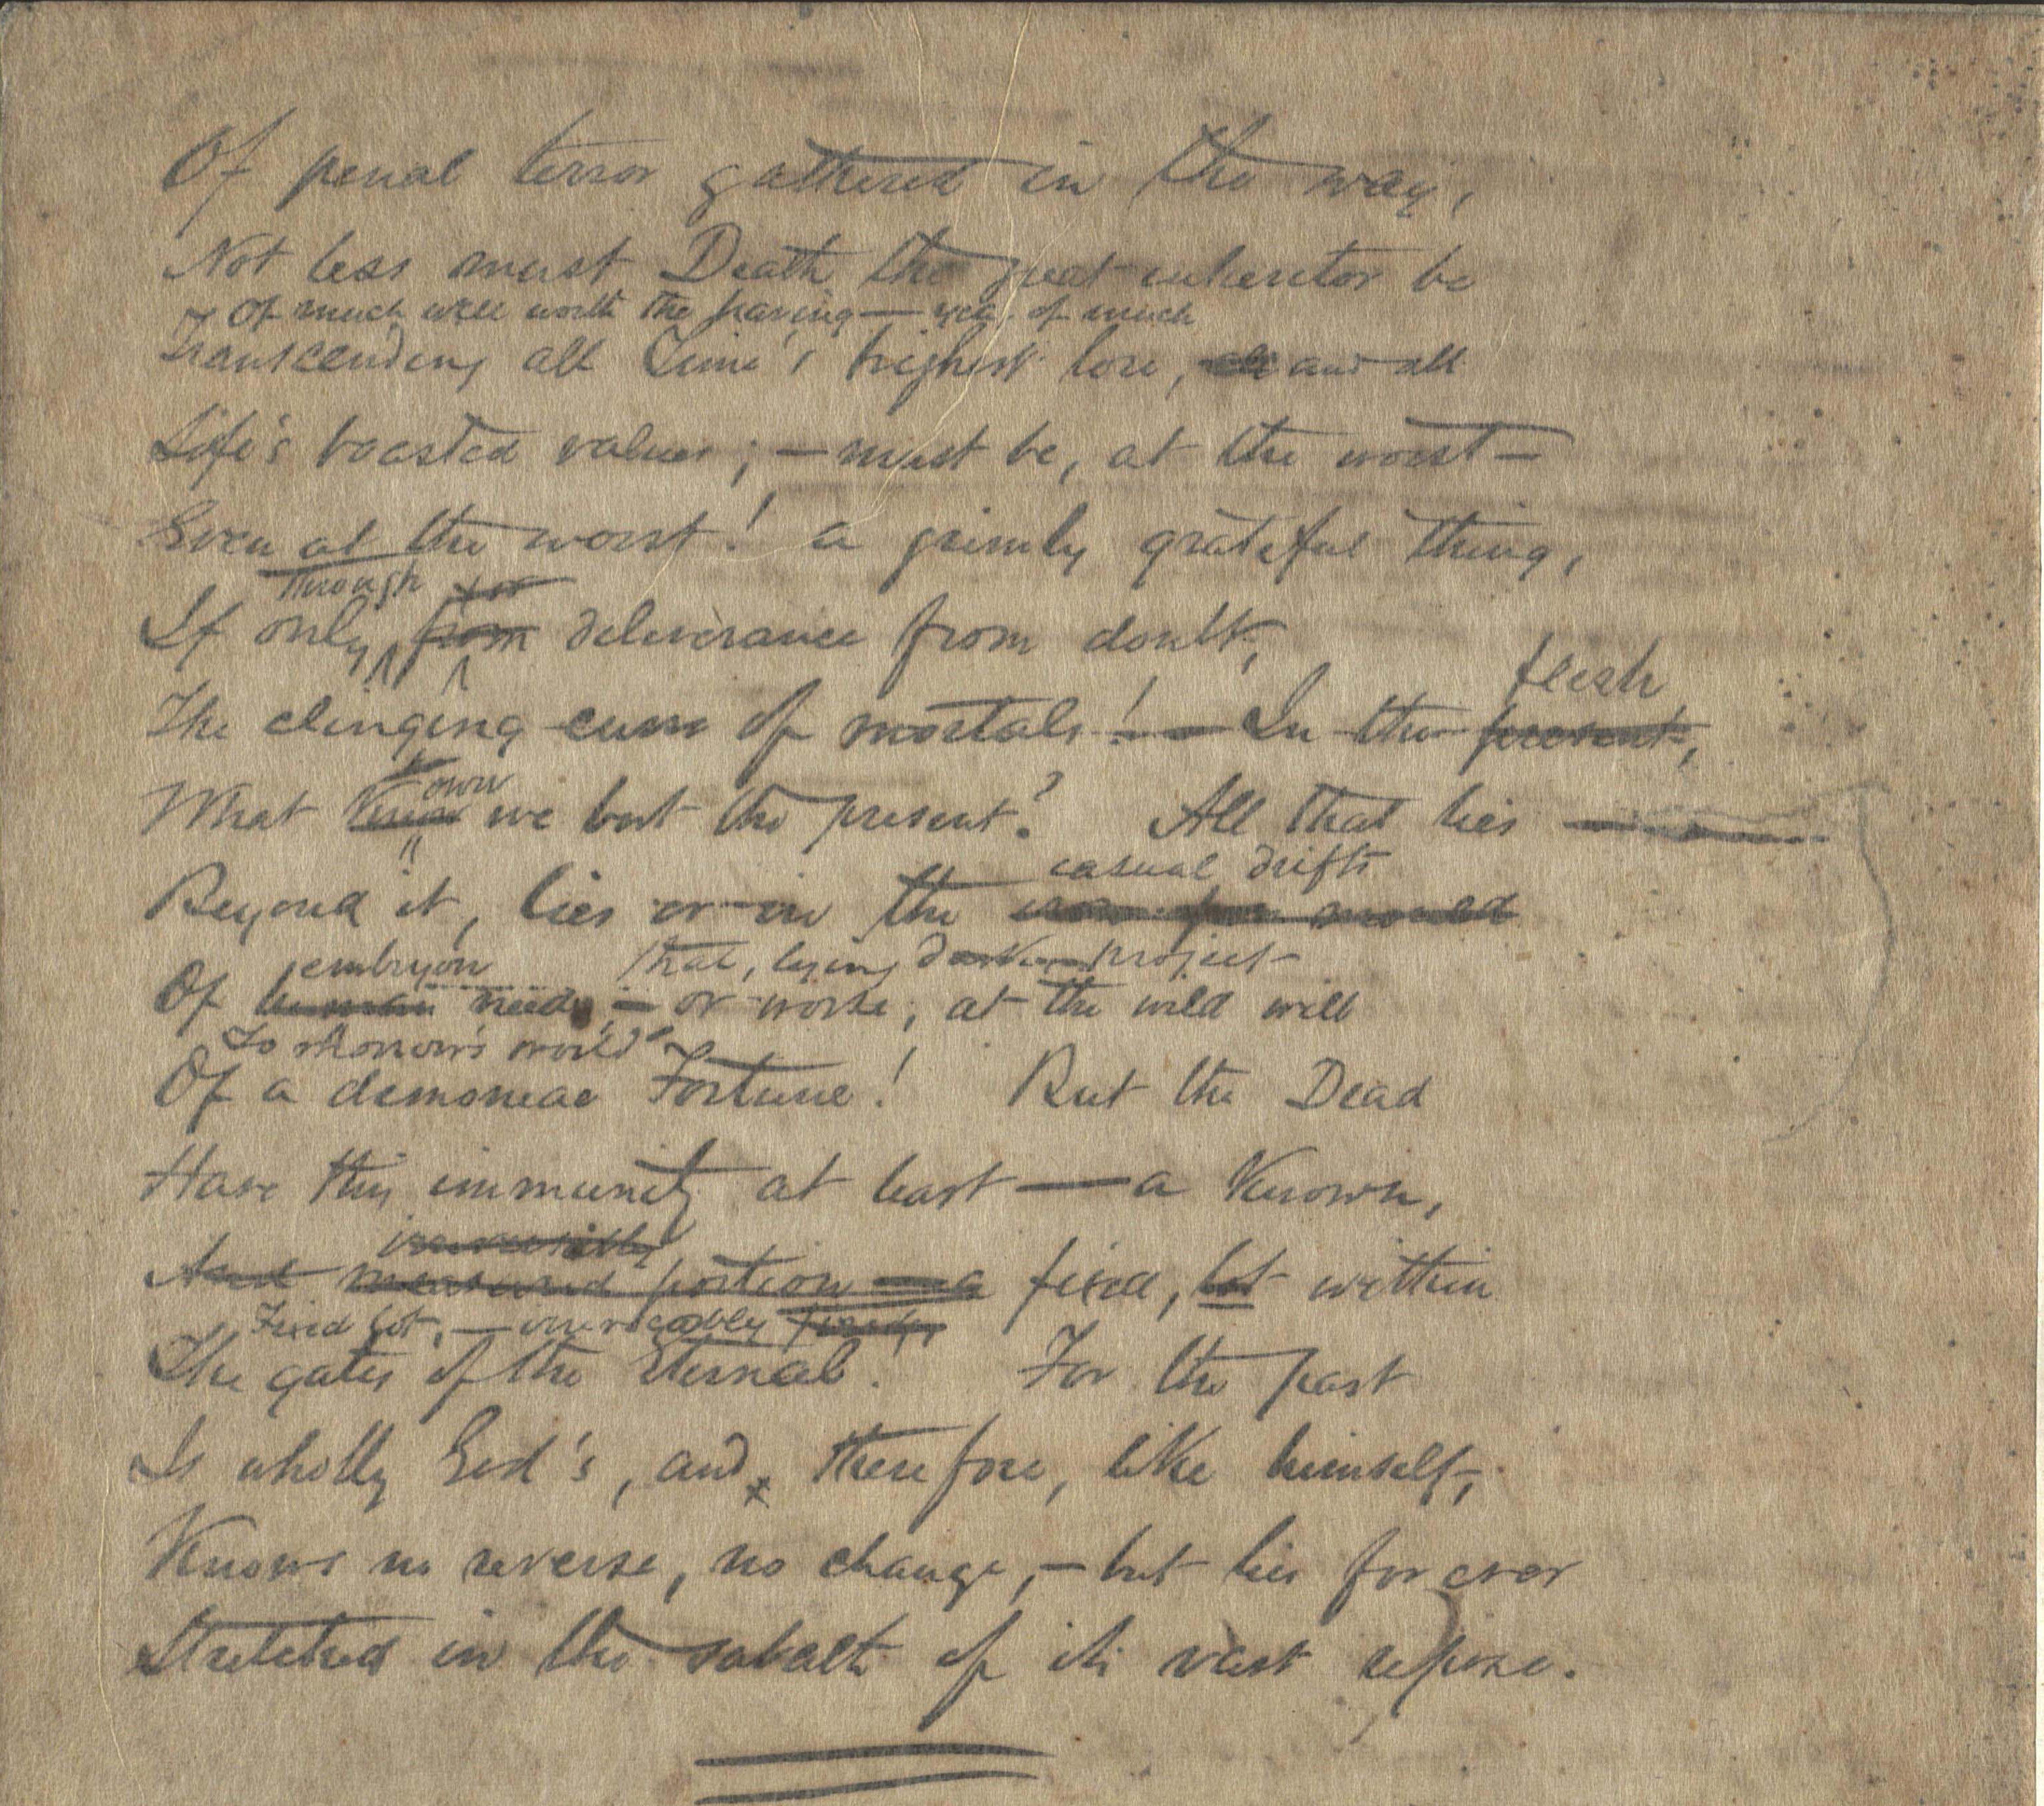 Of penal terror gathered in the way,
Not less must Death the great inheritor be
Of much well worth the having — yea, of much
Transcending all Time's highest lore, and all
Life's boasted values; — must be, at the worst —
Even at the worst! a grimly grateful thing,
through for
If only from deliverance from doubt,
flesh
The clinging curse of mortals! — In the present,
own
What know we but the present? All that lies —
casual drifts
Beyond it, lies or in the mould
embryon that, lying darken project
Of human needs, — or worse, at the wild will
To-morrow's world
Of a demoniac Fortune! But the Dead
Have this immunity at least — a Known,
irrevocably
And measured portion — a fixed, lot within
Fixed lot, — irrevocably fixed
The gates of the Eternal! For the past
Is wholly God's, and therefore, like himself,
Knows no reverse, no change, — but lies for ever
Stretched in the sabbath of its vast repose.